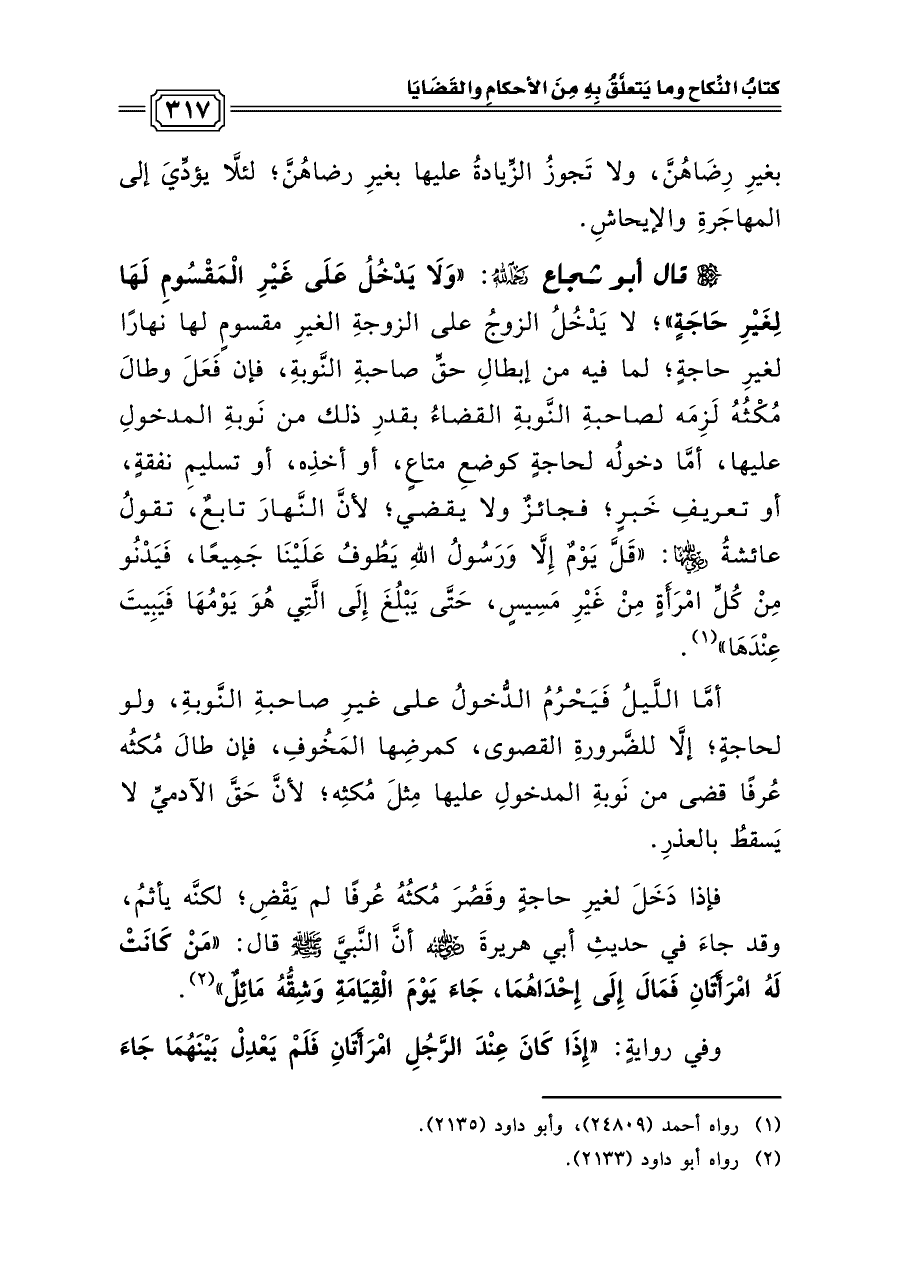 كتابُ النِّكاح وما يَتعلَّقُ بِهِ مِنَ الأحكامِ والقَضَايَا
٣١٧
بغيرِ رِضَاهُنَّ، ولا تَجوزُ الزِّيادةُ عليها بغيرِ رضاهُنَّ؛ لئلَّا يؤدِّيَ إلى
المهاجَرةِ والإيحاشِ.
قال أبو شجاع رَحِمَهُ اللهُ: «وَلَا يَدْخُلُ عَلَى غَيْرِ الْمَقْسُومِ لَهَا
لِغَيْرِ حَاجَةٍ»؛ لا يَدْخُلُ الزوجُ على الزوجةِ الغيرِ مقسومٍ لها نهارًا
لغيرِ حاجةٍ؛ لما فيه من إبطالِ حقِّ صاحبةِ النَّوبةِ، فإن فَعَلَ وطالَ
مُكْثُهُ لَزِمَه لصاحبةِ النَّوبةِ القضاءُ بقدرِ ذلك من نَوبةِ المدخولِ
عليها، أمَّا دخولُه لحاجةٍ كوضعِ متاعٍ، أو أخذِه، أو تسليمِ نفقةٍ،
أو تعريفِ خَبرٍ؛ فجائزٌ ولا يقضي؛ لأنَّ النَّهارَ تابعٌ، تقولُ
عائشةُ رَضِيَ اللهُ عَنْهَا: «قَلَّ يَوْمٌ إِلَّا وَرَسُولُ اللهِ يَطُوفُ عَلَيْنَا جَمِيعًا، فَيَدْنُو
مِنْ كُلِّ امْرَأَةٍ مِنْ غَيْرِ مَسِيسٍ، حَتَّى يَبْلُغَ إِلَى الَّتِي هُوَ يَوْمُهَا فَيَبِيتَ
عِنْدَهَا»(١).
أمَّا اللَّيلُ فَيَحْرُمُ الدُّخولُ على غيرِ صاحبةِ النَّوبةِ، ولو
لحاجةٍ؛ إلَّا للضَّرورةِ القصوى، كمرضِها المَخُوفِ، فإن طالَ مُكثُه
عُرفًا قضى من نَوبةِ المدخولِ عليها مِثلَ مُكثِه؛ لأنَّ حَقَّ الآدميِّ لا
يَسقطُ بالعذرِ.
فإذا دَخَلَ لغيرِ حاجةٍ وقَصُرَ مُكثُهُ عُرفًا لم يَقْضِ؛ لكنَّه يأثمُ،
وقد جاءَ في حديثِ أبي هريرةَ رَضِيَ اللهُ عَنْهُ أنَّ النَّبيَّ ﷺ قال: «مَنْ كَانَتْ
لَهُ امْرَأَتَانِ فَمَالَ إِلَى إِحْدَاهُمَا، جَاءَ يَوْمَ الْقِيَامَةِ وَشِقُّهُ مَائِلٌ»(٢).
وفي روايةٍ: «إِذَا كَانَ عِنْدَ الرَّجُلِ امْرَأَتَانِ فَلَمْ يَعْدِلْ بَيْنَهُمَا جَاءَ
(١) رواه أحمد (٢٤٨٠٩)، وأبو داود (٢١٣٥).
(٢) رواه أبو داود (٢١٣٣).